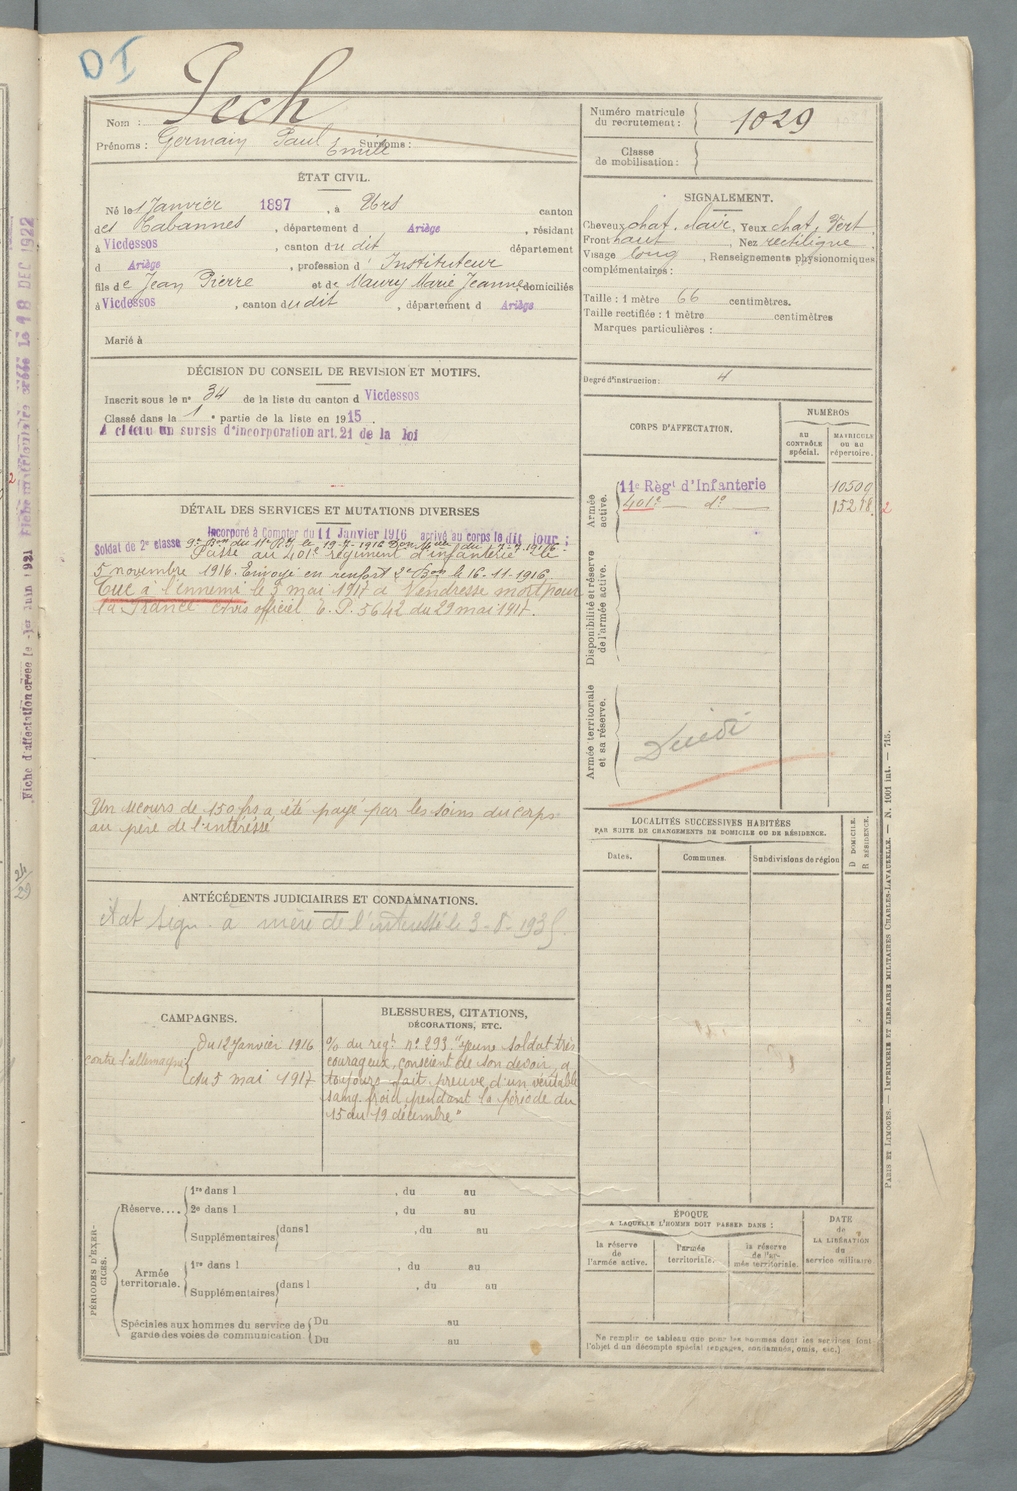 DI
Nom : Pech
Prénoms : Germain Paul Emile Surnoms :
Numéro matricule du recrutement : 1029
Classe de mobilisation :
ÉTAT CIVIL.
Né le 1 Janvier 1897, à Urs canton
des Cabannes, département d Ariège, résidant
à Vicdessos, canton du dit département
d Ariège, profession d' Instituteur
fils de Jean Pierre et de Maury Marie Jeanne, domiciliés
à Vicdessos, canton du dit, département d Ariège
Marié à
SIGNALEMENT.
Cheveux chat. clair, Yeux chat. Vert.
Front haut Nez rectiligne
Visage long, Renseignements physionomiques
complémentaires :
Taille : 1 mètre 66 centimètres.
Taille rectifiée : 1 mètre centimètres
Marques particulières :
Degré d'instruction : 4
DÉCISION DU CONSEIL DE REVISION ET MOTIFS.
Inscrit sous le n° 34 de la liste du canton d Vicdessos
Classé dans la 1e partie de la liste en 1915.
A obtenu un sursis d'incorporation art. 21 de la loi
CORPS D'AFFECTATION.
NUMÉROS
AU CONTRÔLE spécial.
MATRICULE ou au répertoire.
Armée active.
11e Régt d'Infanterie 10500
401e d° 15278 2
Disponibilité et réserve de l'armée active.
Armée territoriale et sa réserve.
DÉTAIL DES SERVICES ET MUTATIONS DIVERSES
Incorporé à Compter du 11 Janvier 1916 arrivé au corps le dit jour ;
Soldat de 2e classe 9e Bon du 11e R.I. le 19-7-1916 du 7-7-1916.
Passé au 401e régiment d'infanterie le
5 novembre 1916. Envoyé en renfort 2e Bon le 16-11-1916
Tué à l'ennemi le 5 mai 1917 à Vendresse mort pour
la France. Avis officiel 6. P. 5642 du 29 mai 1917.
Un secours de 150 frs a été payé par les soins du corps
au père de l'intéressé
LOCALITÉS SUCCESSIVES HABITÉES
PAR SUITE DE CHANGEMENTS DE DOMICILE OU DE RÉSIDENCE.
Dates. Communes. Subdivisions de région
D DOMICILE.
R RÉSIDENCE.
ANTÉCÉDENTS JUDICIAIRES ET CONDAMNATIONS.
à mère de l'intéressé le 3-8-1935.
CAMPAGNES.
contre l'allemagne
Du 12 Janvier 1916
Au 5 mai 1917
BLESSURES, CITATIONS,
DÉCORATIONS, ETC.
du regt n° 293 "jeune soldat très
courageux, conscient de son devoir, a
toujours fait preuve d'un véritable
sang froid pendant la période du
15 au 19 décembre"
PÉRIODES D'EXERCICES.
Réserve....
1re dans l , du au
2e dans l , du au
Supplémentaires dans l , du au
Armée territoriale.
1re dans l , du au
Supplémentaires dans l , du au
Spéciales aux hommes du service de garde des voies de communication
Du au
Du au
ÉPOQUE
A LAQUELLE L'HOMME DOIT PASSER DANS :
la réserve de l'armée active.
l'armée territoriale.
la réserve de l'armée territoriale.
DATE de LA LIBÉRATION du service militaire
Ne remplir ce tableau que pour les hommes dont les services font
l'objet d'un décompte spécial (engagés, condamnés, omis, etc.)
PARIS ET LIMOGES. — IMPRIMERIE ET LIBRAIRIE MILITAIRES CHARLES-LAVAUZELLE. — N. 1001 int. — 715.
Fiche d'affectation créée le -1er Juin 1921 Fiche matriculaire créée le 18 DEC 1922
24/29
2